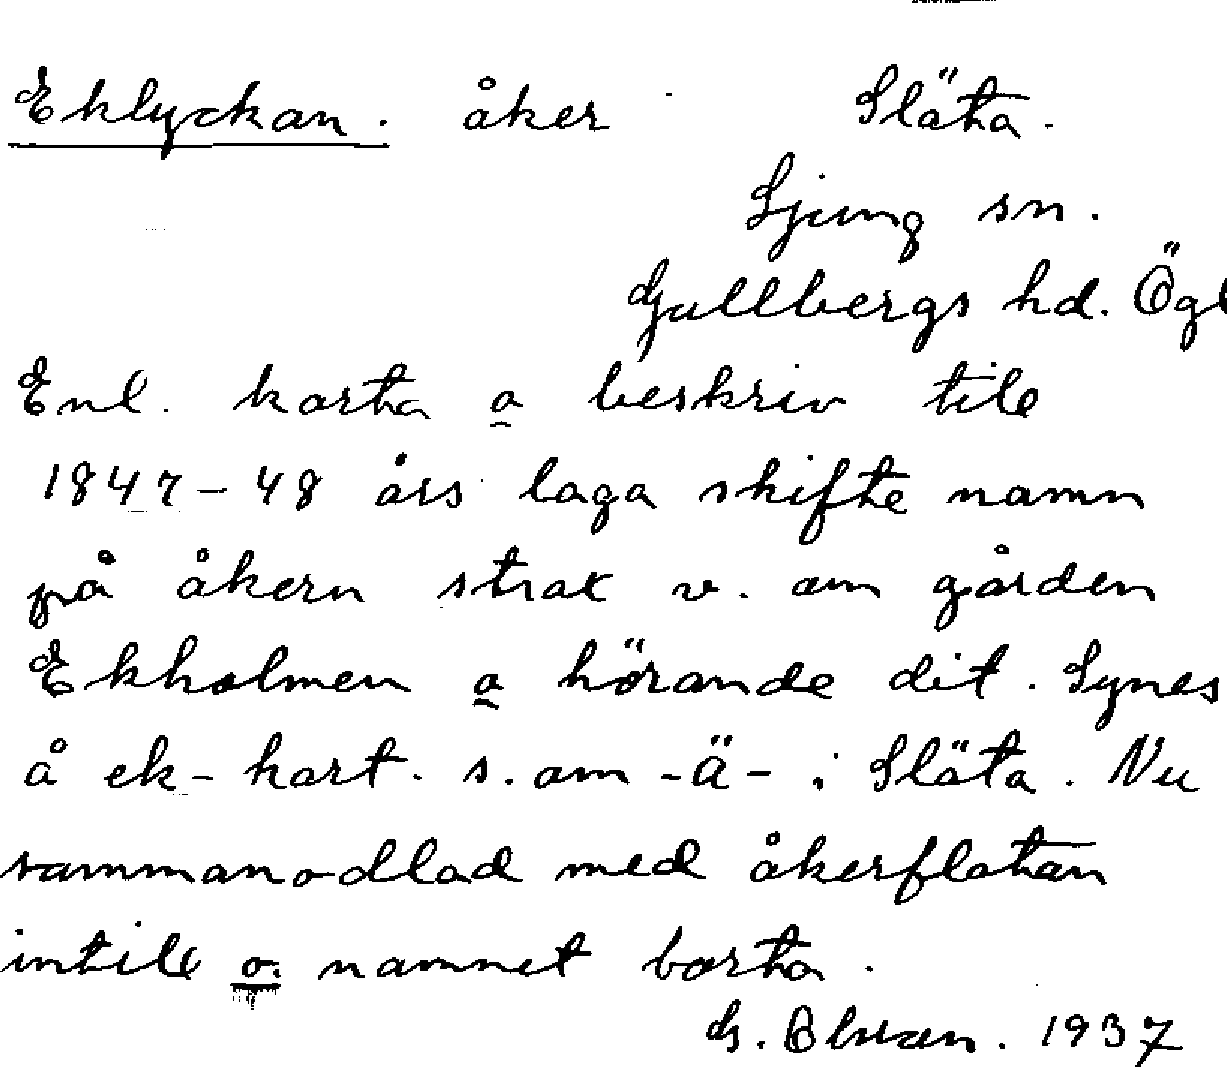 Eklyckan. åker Släta.
Ljung sn.
Gullbergs hd. Ögl
Enl. karta o beskriv till
1847-48 års laga skifte namn
på åkern strax v. om gården
Ekholmen o hörande dit. Synes
å ek-kart. s. om -ä- i Släta. Nu
sammanodlad med åkerflatan
intill o. namnet borta.
G. 1937